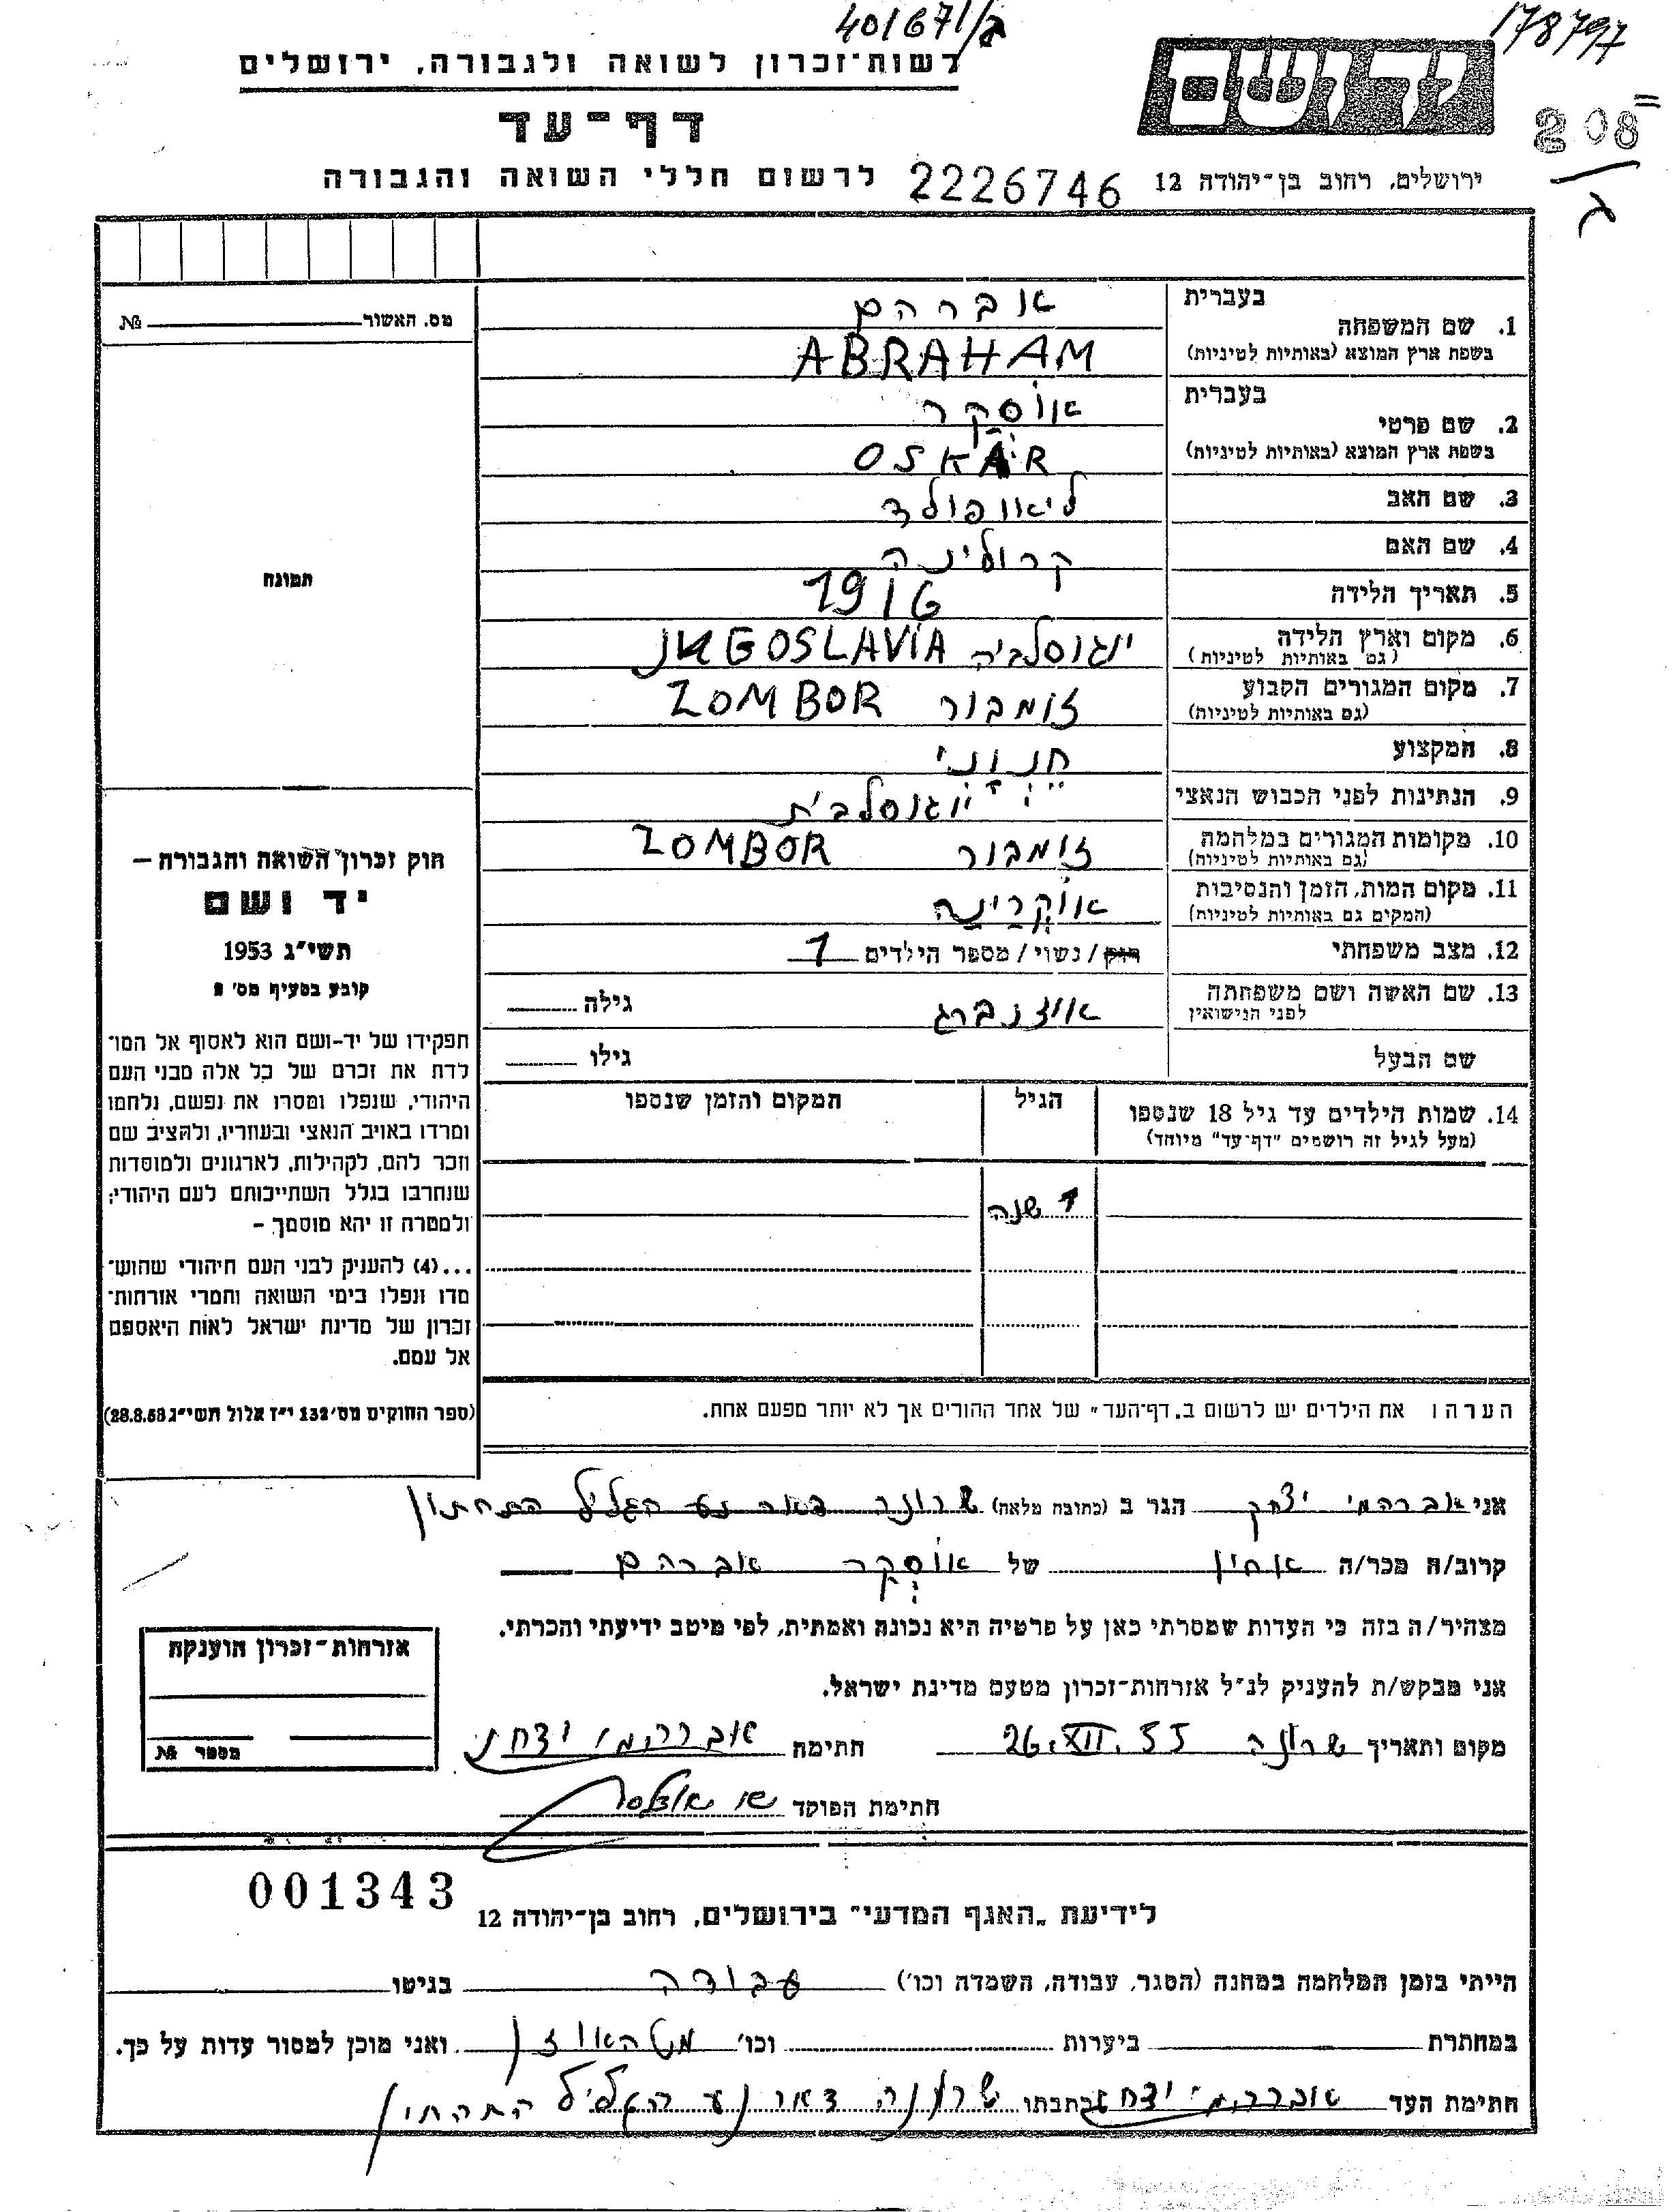 401671/ב
178797
רשות־זכרון לשואה ולגבורה, ירושלים
יד ושם
208=
ב
דף־עד
לרשום חללי השואה והגבורה 2226746 ירושלים, רחוב בן־יהודה 12
מס. האשור № 
בעברית אברהם
1. שם המשפחה
בשפת ארץ המוצא (באותיות לטיניות) ABRAHAM
בעברית אוסקר
2. שם פרטי
בשפת ארץ המוצא (באותיות לטיניות) OSKAR
3. שם האב ליאופולד
4. שם האם קרולינה
5. תאריך הלידה 1916
6. מקום וארץ הלידה יוגוסלביה JUGOSLAVIA
(גם באותיות לטיניות)
7. מקום המגורים הקבוע זומבור ZOMBOR
(גם באותיות לטיניות)
8. המקצוע חנוני
9. הנתינות לפני הכבוש הנאצי יוגוסלבית
10. מקומות המגורים במלחמה זומבור ZOMBOR
(גם באותיות לטיניות)
11. מקום המות, הזמן והנסיבות אוקרינה
(המקים גם באותיות לטיניות)
12. מצב משפחתי רוק / נשוי / מספר הילדים 1
13. שם האשה ושם משפחתה
לפני הנישואין גילה
שם הבעל גילו
14. שמות הילדים עד גיל 18 שנספו הגיל המקום והזמן שנספו
(מעל לגיל זה רושמים "דף־עד" מיוחד)
1 שנה
הערה: את הילדים יש לרשום ב„דף־העד" של אחד ההורים אך לא יותר מפעם אחת.
תמונה
חוק זכרון השואה והגבורה —
יד ושם
תשי"ג 1953
קובע בסעיף מס' 2
תפקידו של יד-ושם הוא לאסוף אל המו־
לדת את זכרם של כל אלה מבני העם
היהודי, שנפלו ומסרו את נפשם, נלחמו
ומרדו באויב הנאצי ובעוזריו, ולהציב שם
וזכר להם, לקהילות, לארגונים ולמוסדות
שנחרבו בגלל השתייכותם לעם היהודי;
ולמטרה זו יהא מוסמך —
...(4) להעניק לבני העם היהודי שהוש־
מדו ונפלו בימי השואה והמרי אזרחות־
זכרון של מדינת ישראל לאות היאספם
אל עמם.
(ספר החוקים מס' 132 י"ז אלול תשי"ג 28.8.53)
אני אברהמי יצחק הגר ב (כתובת מלאה) שרונה דאר נע הגליל התחתון
קרוב/ה מכר/ה אחיו של אוסקר אברהם
מצהיר/ה בזה כי העדות שמסרתי כאן על פרטיה היא נכונה ואמתית, לפי מיטב ידיעתי והכרתי.
אני מבקש/ת להעניק לנ"ל אזרחות-זכרון מטעם מדינת ישראל.
מקום ותאריך שרונה 26.XII.55 חתימה אברהמי יצחק
חתימת הפוקד
אזרחות-זכרון הוענקה
מספר №
001343
לידיעת „האגף המדעי" בירושלים, רחוב בן־יהודה 12
הייתי בזמן המלחמה במחנה (הסגר, עבודה, השמדה וכו') עבודה בגיטו
במחתרת ביערות וכו' מטהאוזן ואני מוכן למסור עדות על כך.
חתימת העד אברהמי יצחק כתבתו שרונה דאר נע הגליל התחתון